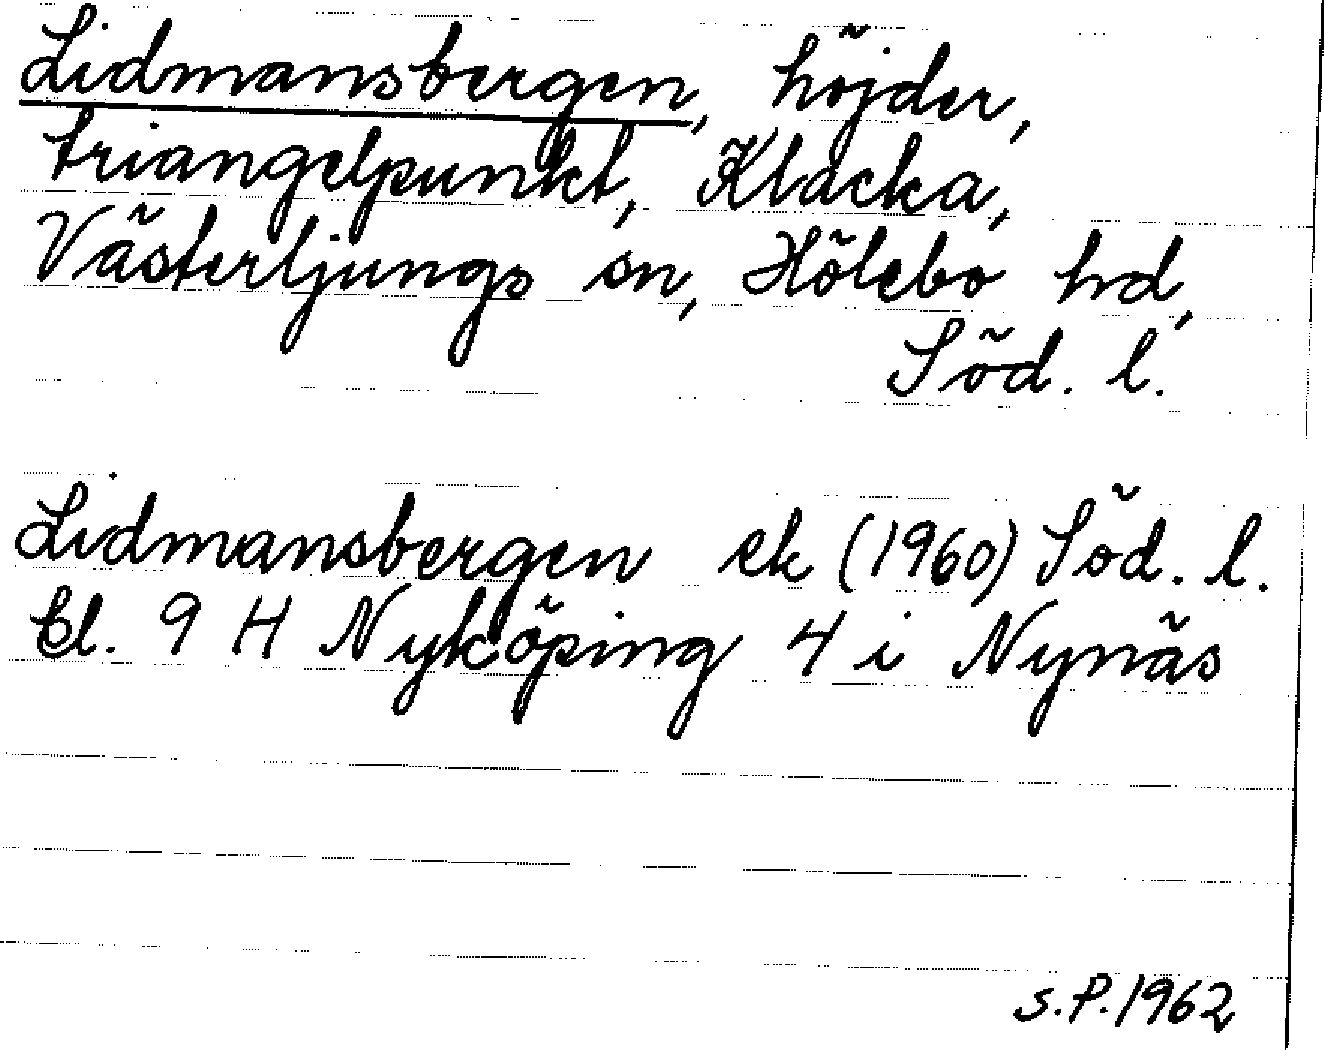 Lidmansbergen, höjder,
triangelpunkt, Klacka,
Västerljungs sn, Hölebo hd,
Söd. l.
Lidmansbergen ek (1960) Söd. l.
bl. 9 H Nyköping 4 i Nynäs
S.P. 1962